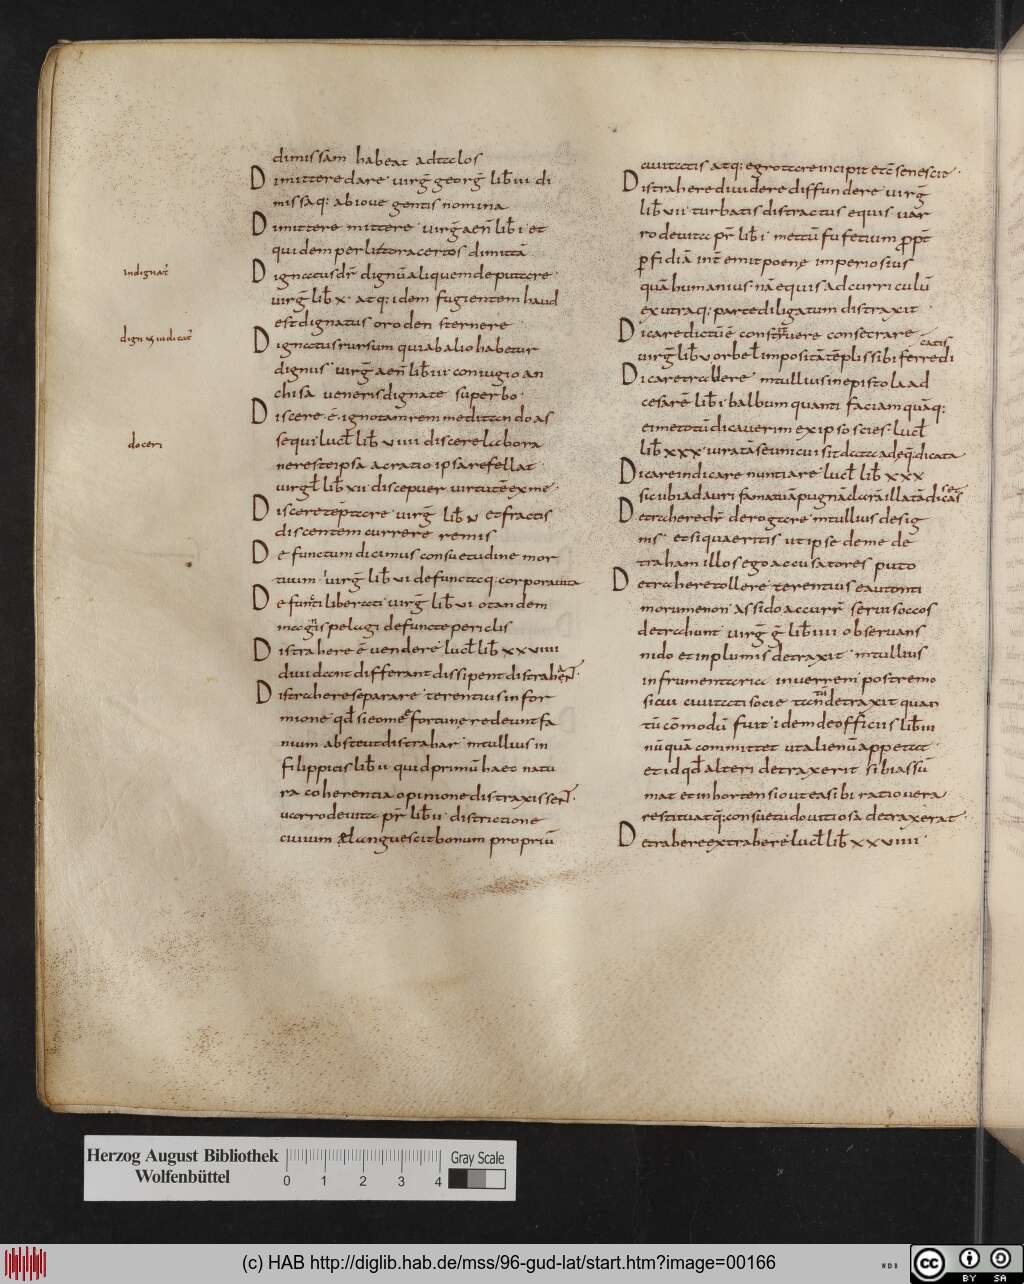 dimissam habeat ad telos
Dimittere dare virḡ georḡ lib̄ iii di
missaq: ab iove gentis nomina
Dimittere mittere virḡ aen̄ lib̄ i et
quidem per littora certos dimittā
indignat̄
Dignatus dr̄ dignū aliquem deputare
virḡ lib̄ x atq: idem fugientem haud
est dignatus oroden sternere
Dignatus rursum qui ab alio habetur
dignus virḡ aen̄ lib̄ iii coniugio an
chisa veneris dignate superbo
Discere ē ignotam rem meditando as
sequi lucl̄ lib̄ xviiii discere labora
doceri
ne res te ipsa ac ratio ipsa refellat
virgl̄ lib̄ xii disce puer virtutē ex me
Discere tēptare virḡ lib̄ v et fractis
discentem currere remis
Defunctum dicimus consuetudine mor
tuum virḡ lib̄ vi defunctaq: corpora vita
Defuncti liberati virḡ lib̄ vi o tandem
magnis pelagi defuncte periclis
Distrahere ē vendere lucl̄ lib̄ xxviiii
dividant differant dissipent distrahant
Distrahere separare terentius in for
mione qd̄ si eo meę fortunę redeunt
nium abs te ut distrahar m tullius in
filippicis lib̄ ii quid primū haec natu
ra coherentia opinione distraxissent
varro de vita pr̄ lib̄ ii distractione
civium elanguescit bonum propriū
civitatis atq: egrotare incipit et c̄senescere
Distrahere dividere diffundere virḡ
lib̄ vii turbatis distractus equis var
ro de vita pr̄ lib̄ i mettū fufetium p̄p̄t
perfidiā int̄emit poenę imperiosius
quā humanius nā equis ad curriculū
ex utraq: parte diligatum distraxit
Dicare dictū ē construere consecrare
virḡ lib̄ v orbel̄ impositā tēplis sibi ferre di
catis
Dicare tradere m tullius in epistola ad
cesarē lib̄ i balbum quanti faciam quāq:
ei me totū dicaverim ex ipso scies lucl̄
lib̄ xxx
Dicare indicare nuntiare lucl̄ lib̄ xxx
Detrahere dr̄ derogare m tullius de sig
nis et si quaeritis ut ipse de me de
traham illos ego accusatores puto
Detrahere tollere terentius eautonti
morumenon assido accurr̄ servi soccos
detrahunt virḡ ḡ lib̄ iiii observans
nido et inplumis detraxit m tullius
in frumentaria in verrem postremo
sicui civitati socie tantū detraxit quan
tū cōmodū fuit idem de officiis lib̄ iii
nūquā committet ut alienū appetat
et id qd̄ alteri detraxerit sibi assū
mat et in hortensio ut ea sibi ratio vera
restituat q̄ consuetudo vitiosa detraxerat
Detrahere extrahere lucl̄ lib̄ xxviiii
Herzog August Bibliothek
Wolfenbüttel
0 1 2 3 4
Gray Scale
(c) HAB http://diglib.hab.de/mss/96-gud-lat/start.htm?image=00166
WDB
cc BY SA